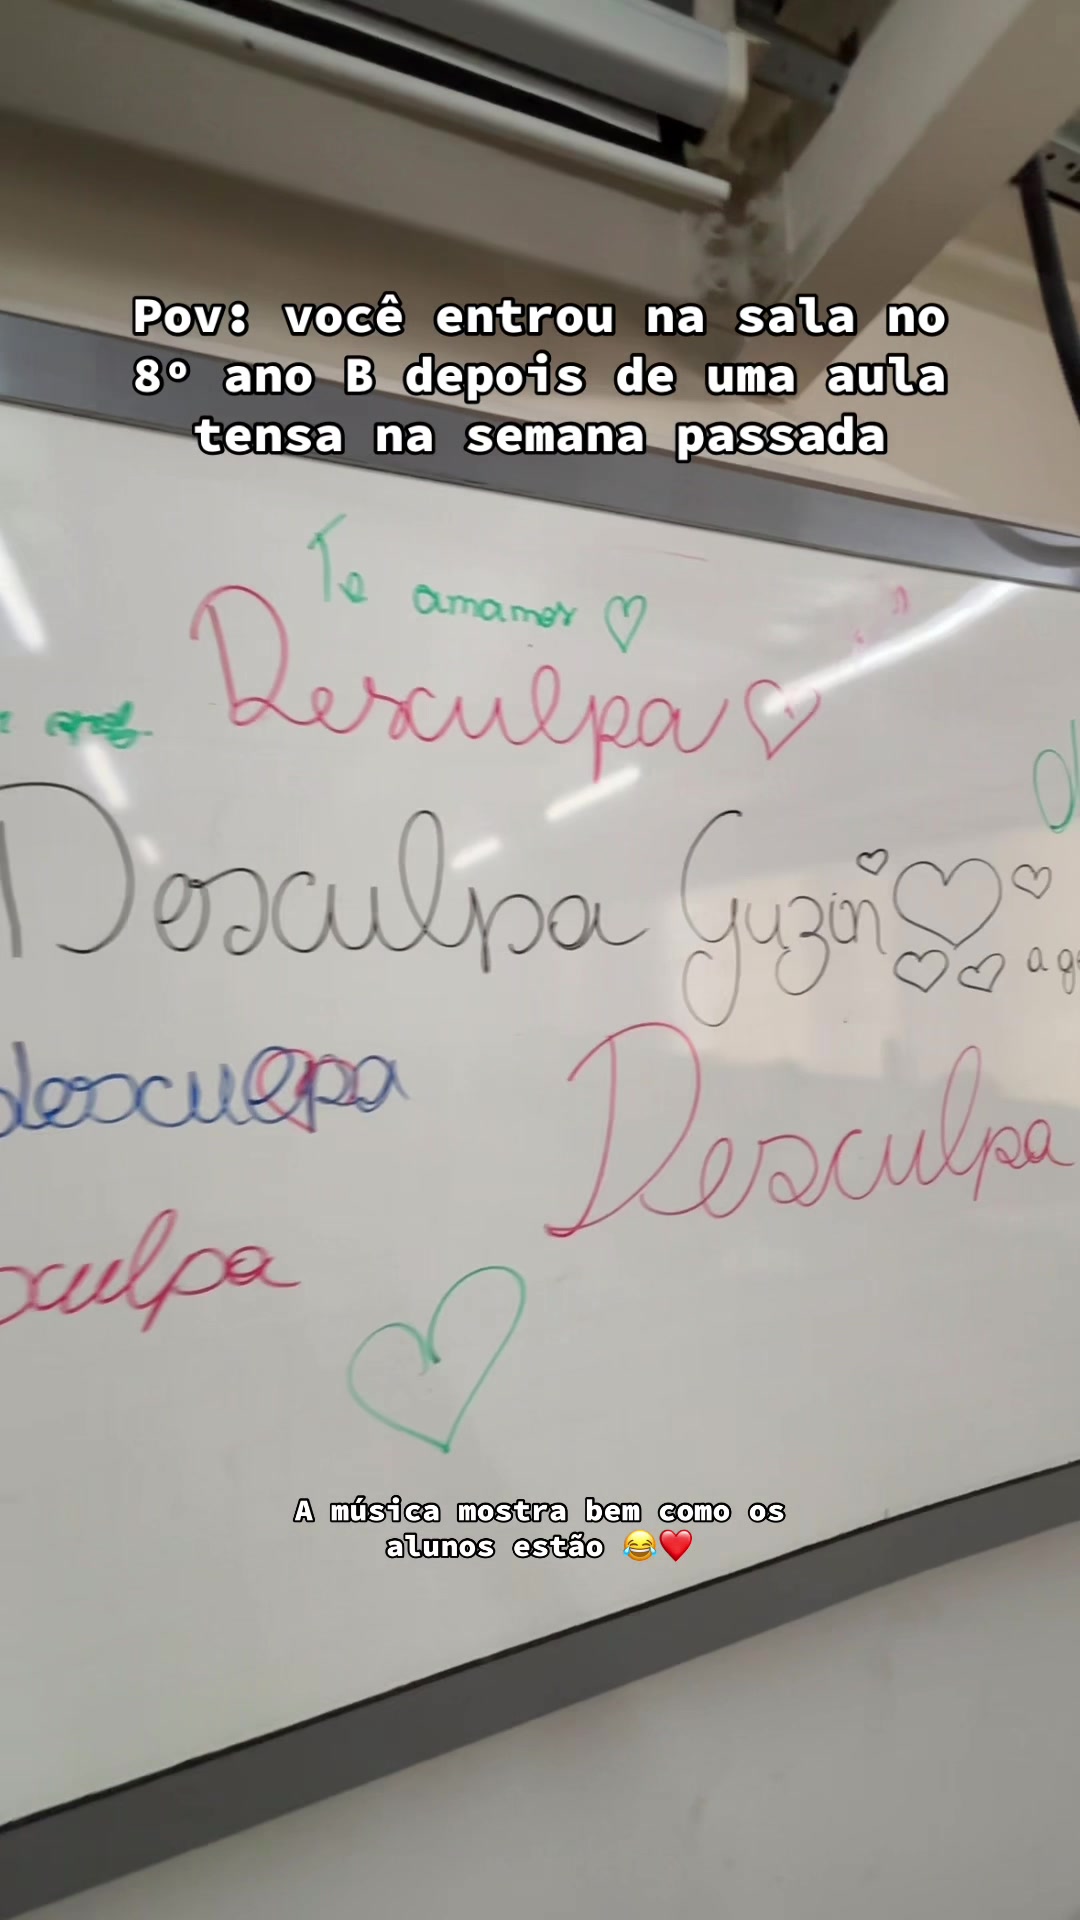 Pov: você entrou na sala no
8º ano B depois de uma aula
tensa na semana passada
Te amamos
Desculpa
Desculpa Guzin
desculpa
Desculpa
sculpa
A música mostra bem como os
alunos estão 😂❤️